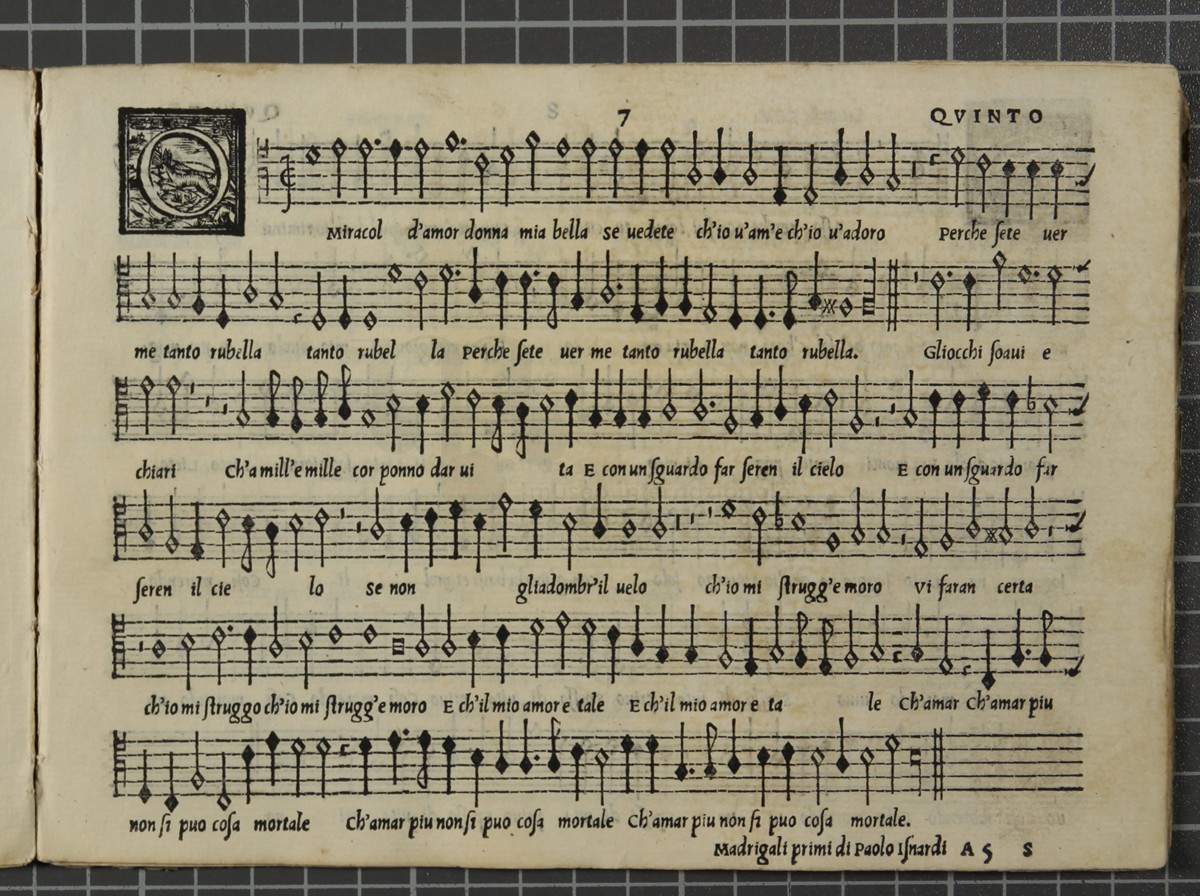 7 QVINTO
O Miracol d'amor donna mia bella se uedete ch'io u'am'e ch'io u'adoro Perche sete uer
me tanto rubella tanto rubel la Perche sete uer me tanto rubella tanto rubella. Gliocchi soaui e
chiari Ch'a mill'e mille cor ponno dar ui ta E con un sguardo far seren il cielo E con un sguardo far
seren il cie lo se non gliadombr'il uelo ch'io mi strugg'e moro Vi faran certa
ch'io mi struggo ch'io mi strugg'e moro E ch'il mio amor e tale E ch'il mio amor e ta le Ch'amar Ch'amar piu
non si puo cosa mortale Ch'amar piu non si puo cosa mortale Ch'amar piu non si puo cosa mortale.
Madrigali primi di Paolo Isnardi A 5 S